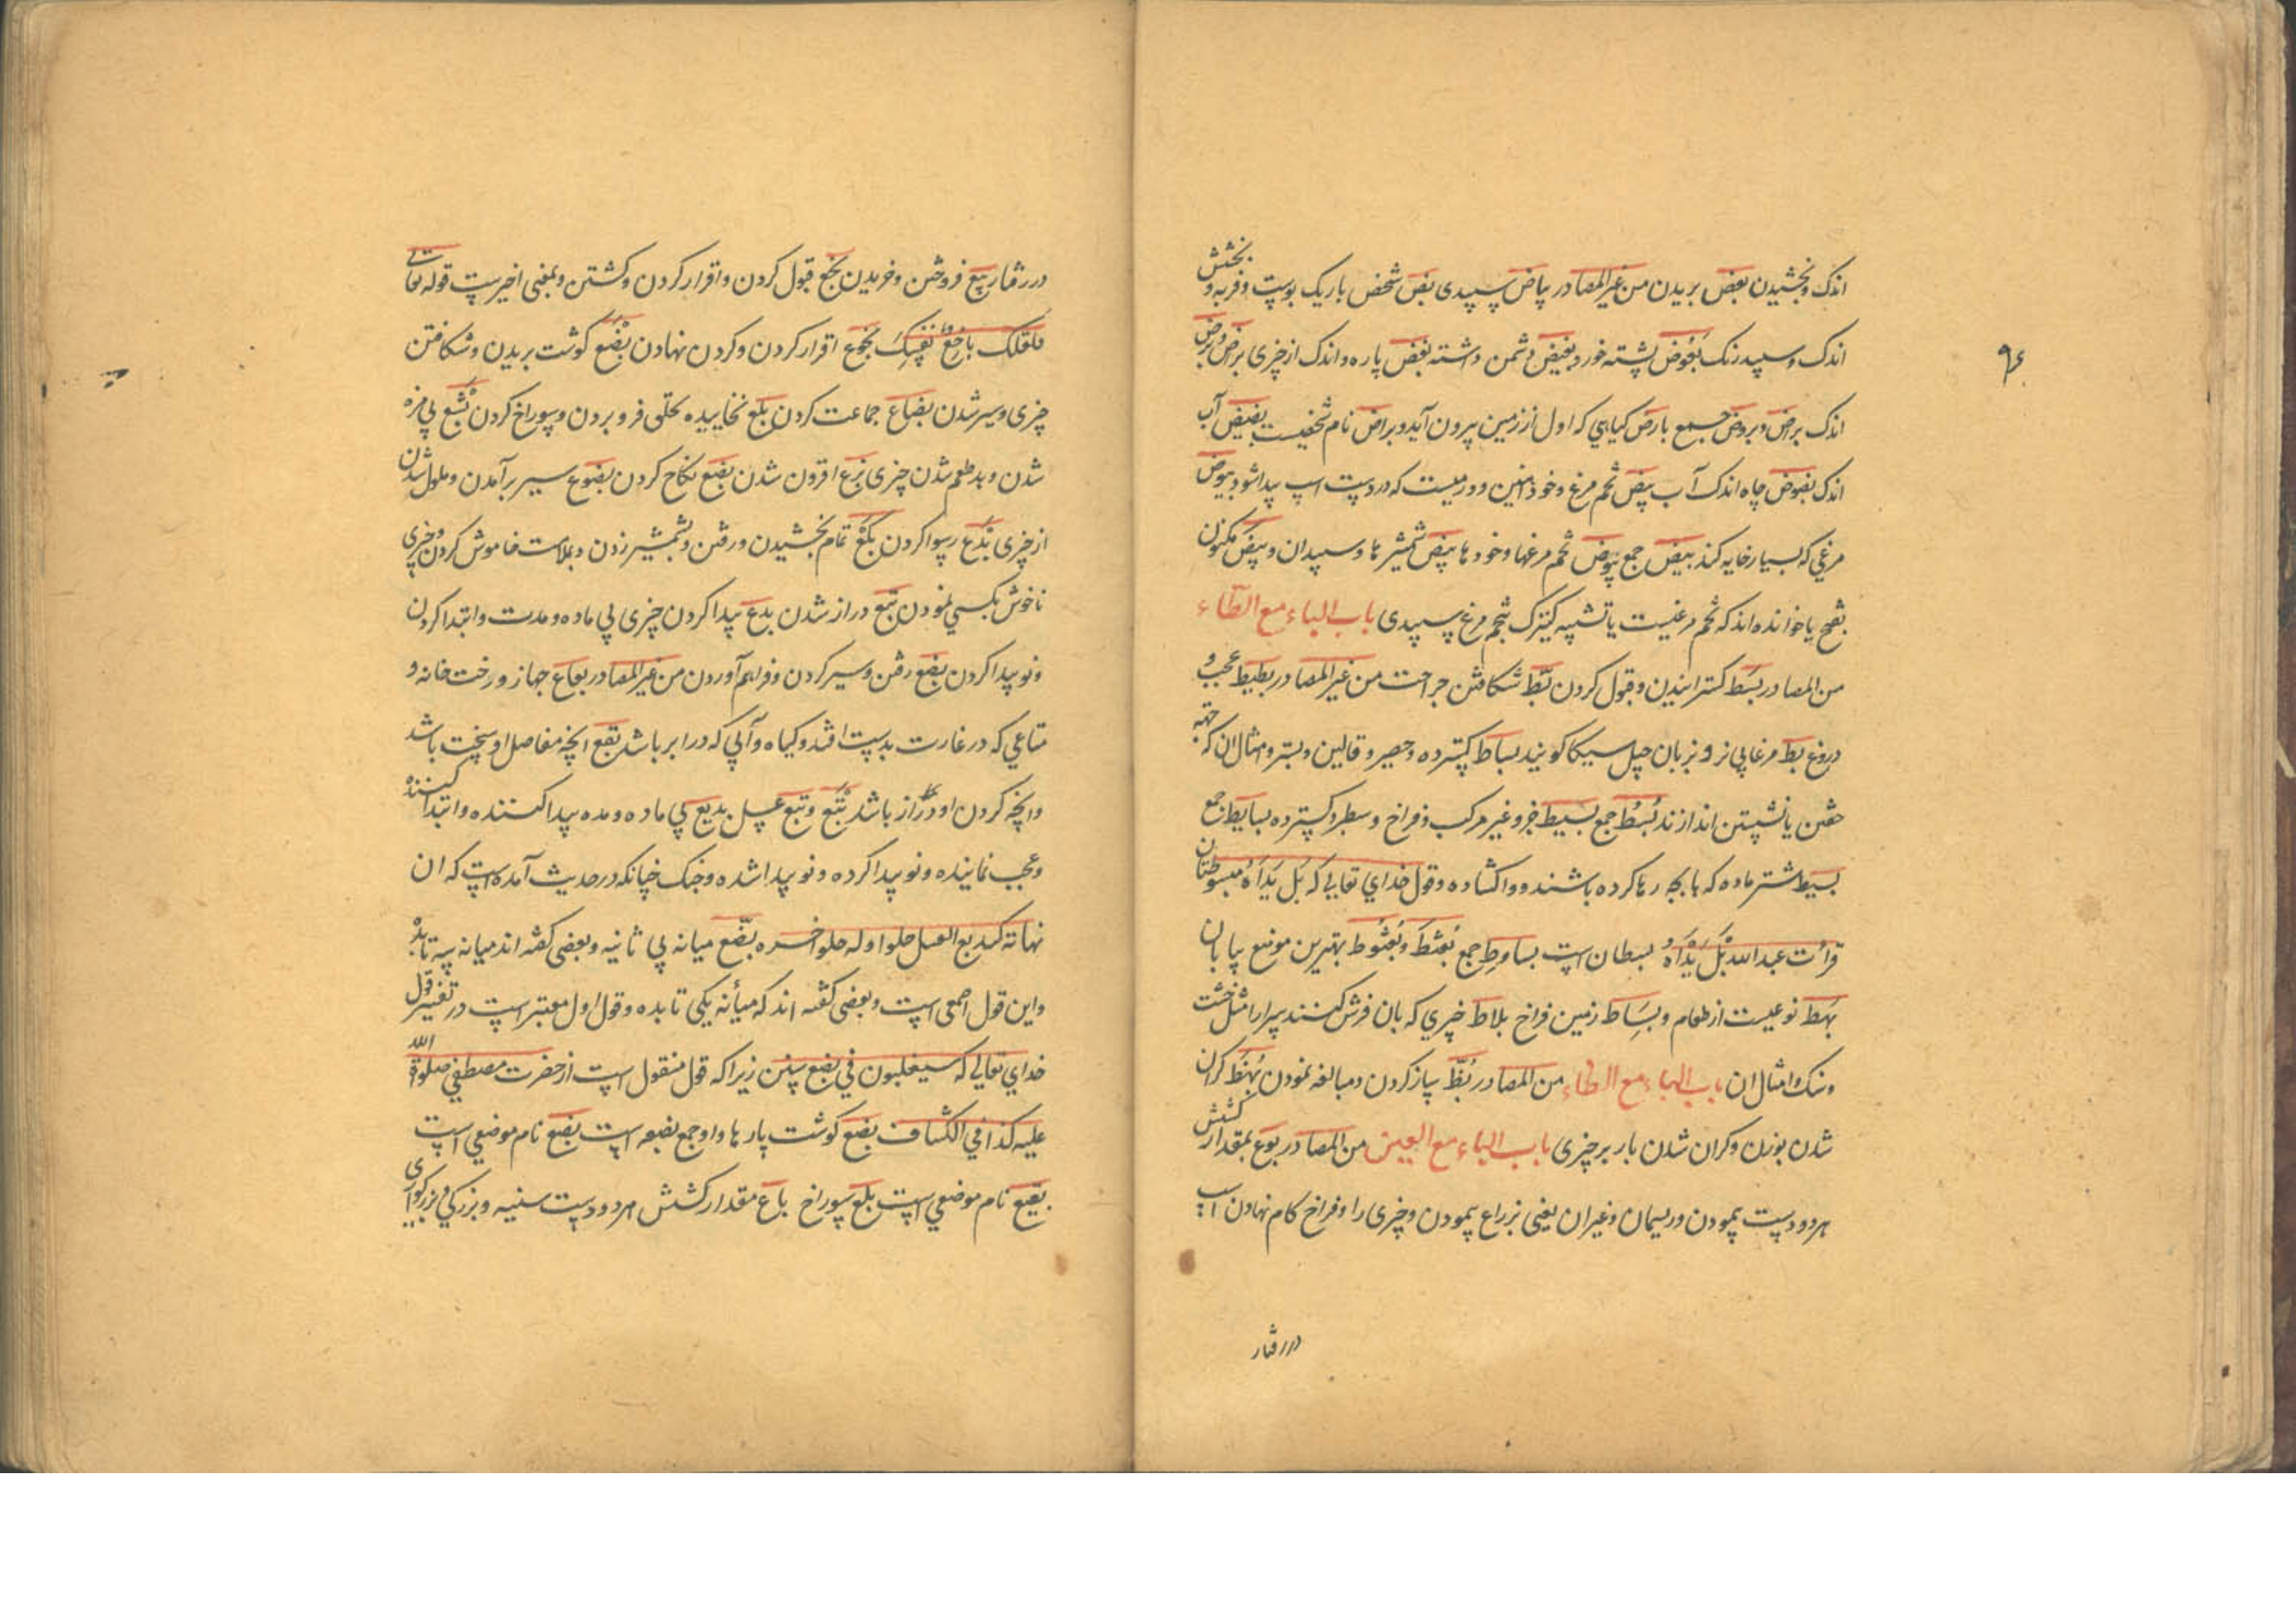 اندک و بخشیدن بعض بریدن من غیر المصادر بیاض سپیدی بض شخص باریک پوست و فربه و بخشش
اندک و سپید رنک بعوض پشه خورد بغیض دشمن داشته بعض پاره و اندک از چیزی برض و برض
اندک براض و بروض جمع بارض کیاهی که اول از زمین بیرون آید و براض نام شخصیست بضیض آب
اندک بضوض چاه اندک آب بیض تخم مرغ و خود آهنین و ورمیست که در دست اسپ پیدا شود بیوض
مرغی که بسیار خایه کند بیض جمع بیوض تخم مرغها و خودها بیض شمشیرها و سپیدان و بیض مکنون
یا خوانده اند که تخم مرغیست یا تشبیه کنیزک بتخم مرغ سپیدی باب الباء مع الطاء
من المصادر بسط کسترانیدن و قبول کردن بط شکافتن جراحت من غیر المصادر بطیط عجب و
دروغ بط مرغابی نر و بزبان جیل سیکا کویند بساط کسترده و حصیر و قالین و بستر و امثال ان که جهة
خفتن یا نشستن اندازند بسط جمع بسیط فرو غیر مرکب و فراخ و سطبر و کسترده بسایط جمع
بسیط شتر ماده که با بچه رها کرده باشند و واکشاده و قول خدای تعالی که بل یداه مبسوطتان
قرائت عبد الله بل یداه بسطان است بساوط جمع بعثط و بعثوط بهترین موضع بیابان
بهط نوعیست از طعام و بساط زمین فراخ بلاط چیزی که بان فرش کنند سرا را مثل خشت
و سنک و امثال ان باب الباء مع الظاء من المصادر بظ ساز کردن و مبالغه نمودن بهظ کران
شدن بوزن و کران شدن بار بر چیزی باب الباء مع العین من المصادر بوع بمقدار کشش
هر دو دست پیمودن و ریسمان و غیر ان یعنی بذراع پیمودن و چیزی را و فراخ کام نهادن اسپ
در رفتار
در رفتار بیع فروختن و خریدن بخع قبول کردن و اقرار کردن و کشتن و بمعنی اخیرست قوله تعالی
فلعلک باخع نفسک بخوع اقرار کردن و کردن نهادن بضع کوشت بریدن و شکافتن
چیزی و سیر شدن بضاع جماعت کردن بلع نخاییده بحلق فرو بردن و سوراخ کردن بشع بی مزه
شدن و بد طعم شدن چیزی بزع افزون شدن بضع نکاح کردن بضوع سیر برآمدن و ملول شدن
از چیزی بدع رسوا کردن بکع تمام بخشیدن و رفتن و بشمشیر زدن و بملامت خاموش کردن و چیزی
ناخوش بکسی نمودن بتع دراز شدن بدع پیدا کردن چیزی بی ماده و مدت و ابتدا کردن
و نو پیدا کردن بضع رفتن و سیر کردن و فراهم آوردن من غیر المصادر بعاع جهاز و رخت خانه و
متاعی که در غارت بدست افتد و کیاه و آبی که در ابر باشد بتع انچه مفاصل او سخت باشد
و انچه کردن او دراز باشد بتع و بتع عسل بدیع بی ماده و مده پیدا کننده و ابتدا کننده
و عجب نماینده و نو پیدا کرده و نو پیدا شده و خنک چنانکه در حدیث آمده است که ان
تهامة کبدیع العسل حلوا وله حلوا خره بضع میانه بی ثانیه و بعضی کفته اند میانه سه تا بده
و این قول اصمعی است و بعضی کفته اند که میانه یکی تا بده و قول اول معتبر است در تفسیر قول
خدای تعالی که سیغلبون فی بضع سنین زیرا که قول منقول است از حضرت مصطفی صلوة الله
علیه کذا فی الکشاف بضع کوشت پارها و او جمع بضعه است بضیع نام موضعی است
بقیع نام موضعی است بلع سوراخ باع مقدار کشش هر دو دست سینه و بزرکی و بزرکواری